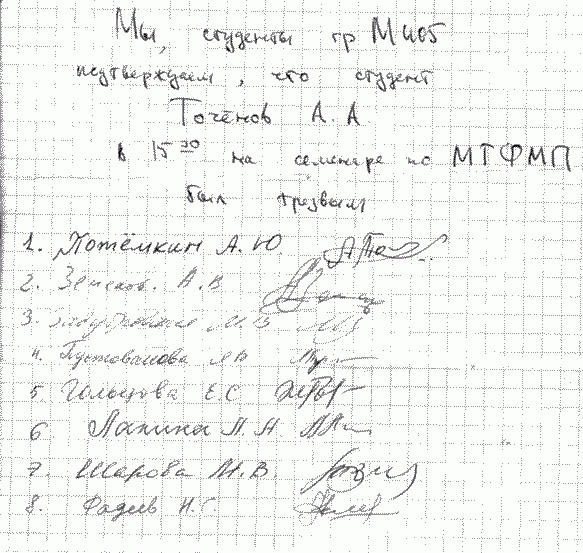 Мы, студенты гр М405
подтверждаем, что студент
Точёнов А. А
в 15 30 на семинаре по МТФМП
был трезвым
1. Потёмкин А. Ю.
2. А. В
3. М. В
4. Пустовалова
5. Гольцова Е. С
6 Лапина Л. А.
7. Шарова М. В.
8. Фадеев И. С.